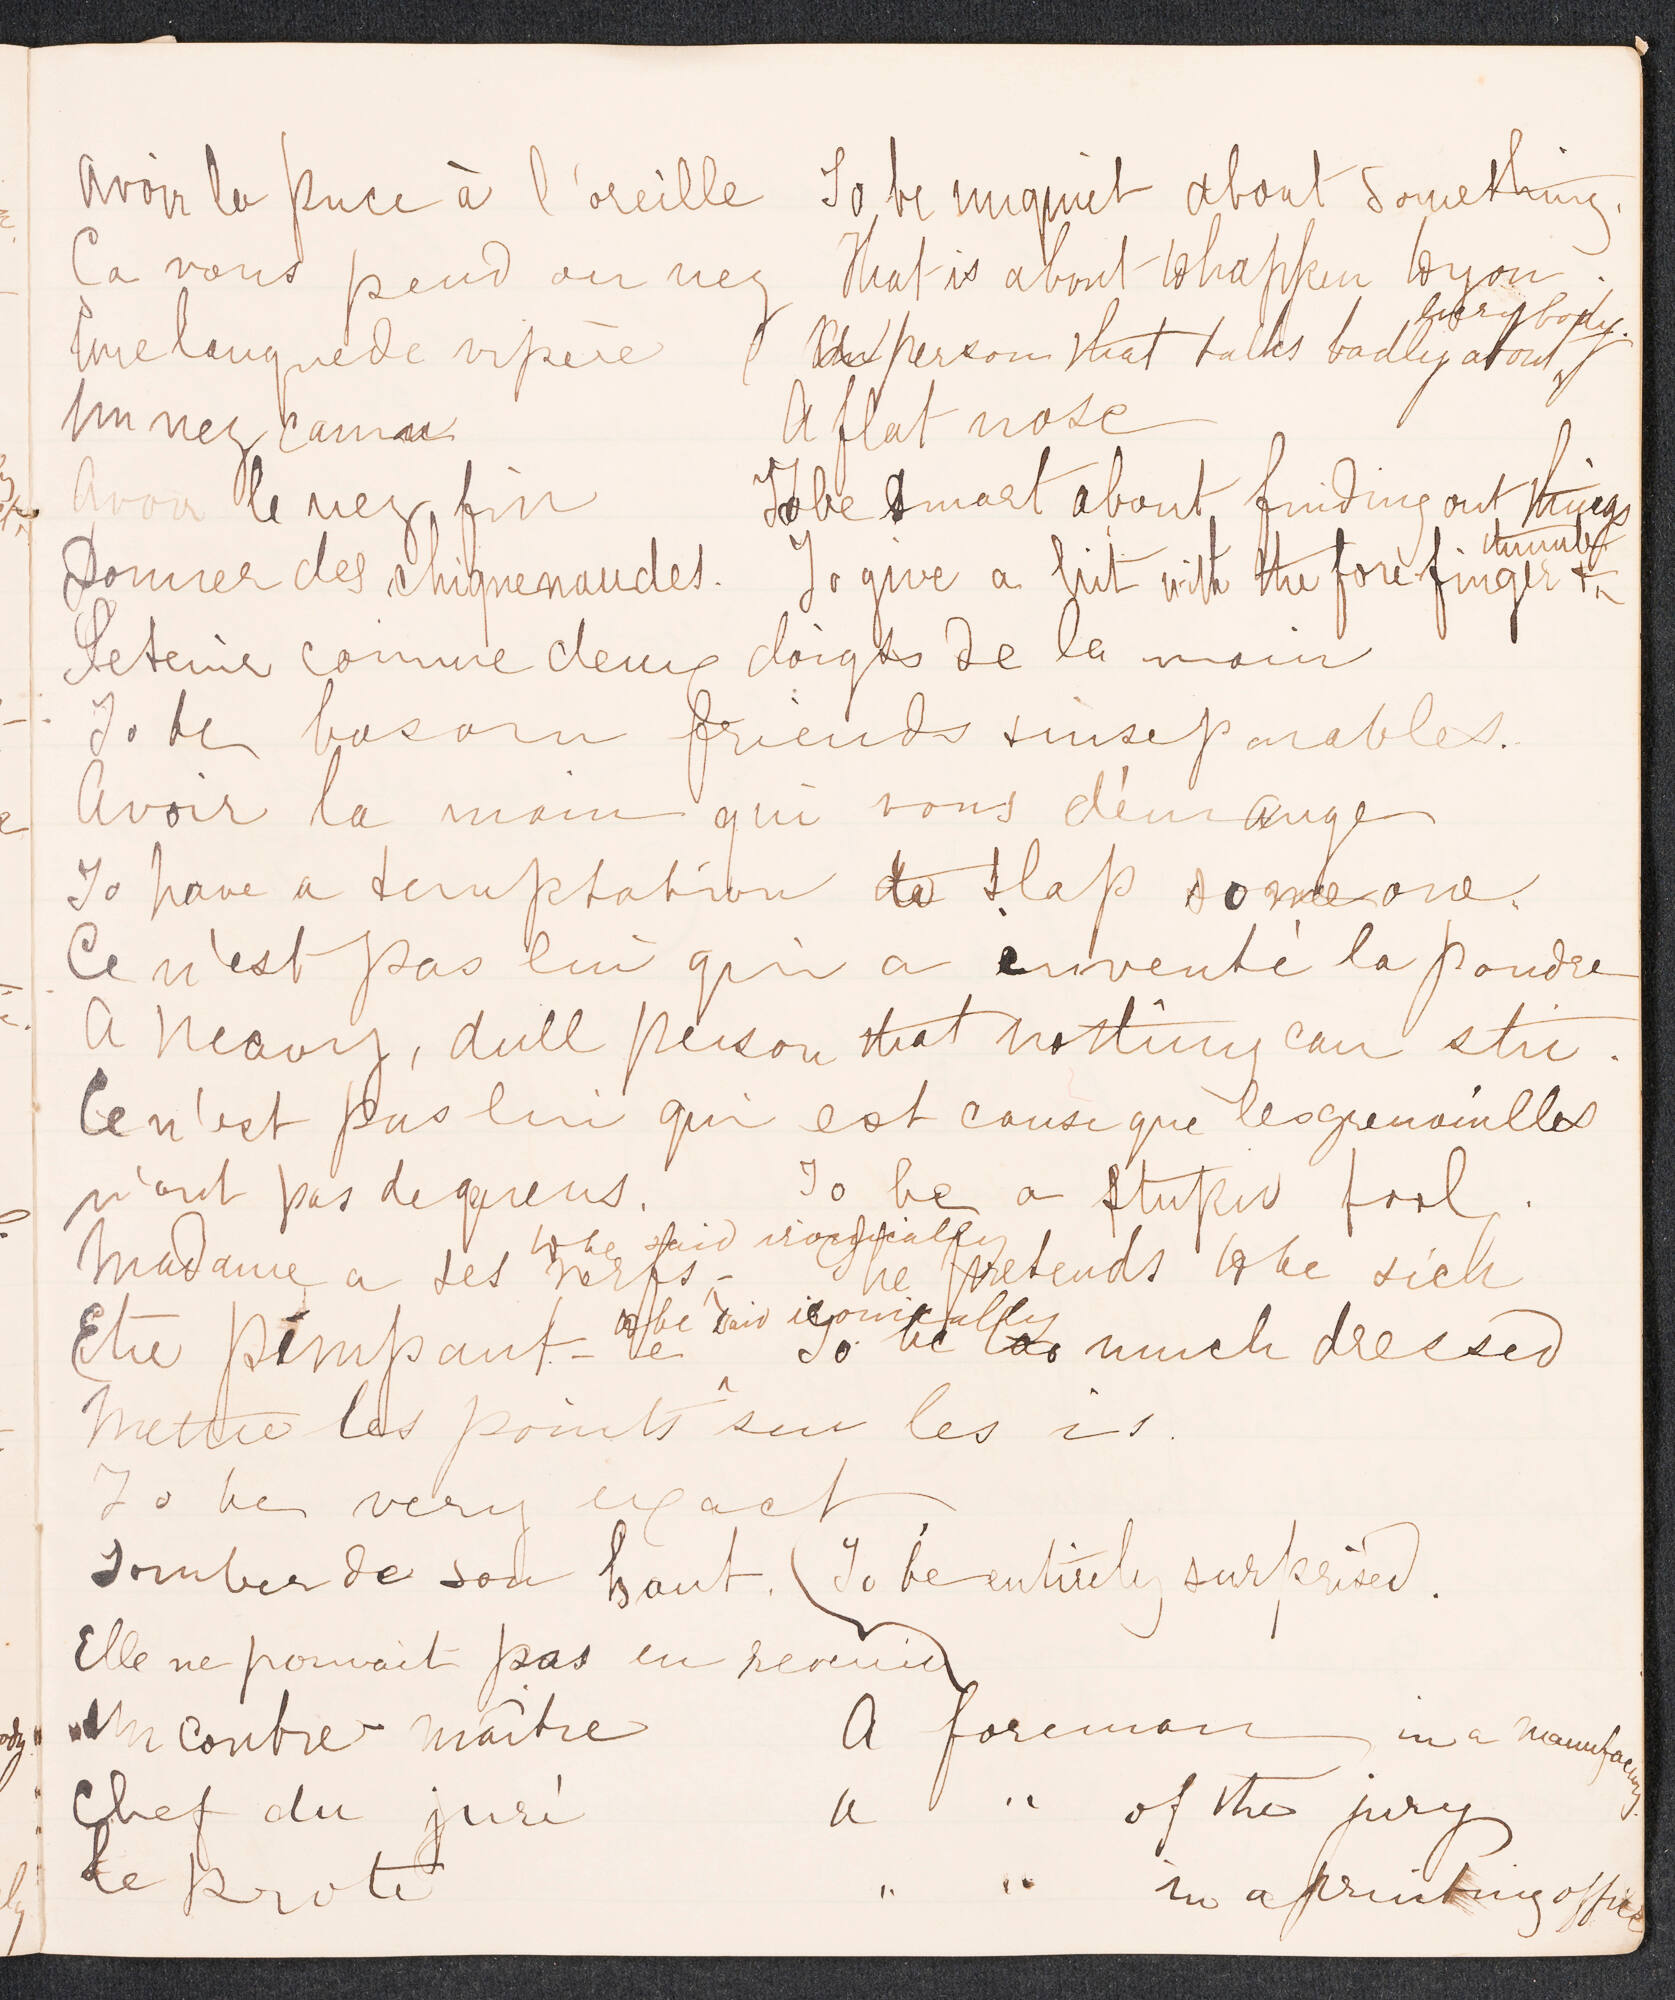 Avoir la puce à l'oreille To be unquiet about something.
Ca vous pend au nez That is about to happen to you.
everybody.
Une langue de vipère A person that talks badly about
Un nez camu A flat nose
Avoir le nez fin To be smart about finding out things
thumb
Donner des chiquenaudes. To give a hit with the fore finger +
Se tenir comme deux doigts de la main
To be bosom friends + inseparables.
Avoir la main qui vous démange
To have a temptation to slap someone.
Ce n'est pas lui qui a inventé la poudre
A heavy, dull person that nothing can stir.
Ce n'est pas lui qui est cause que les grenouilles
n'ont pas de queues. To be a stupid fool.
to be said ironically
Madame a ses nerfs - She pretends to be sick
to be said ironically
Etre pimpant - te To be too much dressed
Mettre les points sur les is.
To be very exact
Tomber de son haut. (To be entirely surprised.
Elle ne pouvait pas en revenir
Un contre-maître A foreman in a manufactury.
Chef du juré a " of the jury
Le prote " " in a printing office